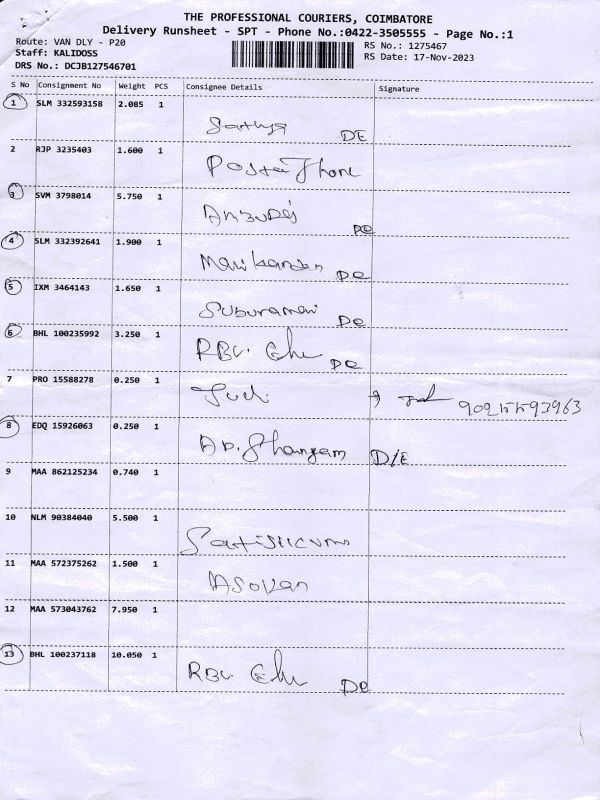 THE PROFESSIONAL COURIERS, COIMBATORE
Delivery Runsheet - SPT - Phone No.:0422-3505555 - Page No.:1
Route: VAN DLY - P20 RS No.: 1275467
Staff: KALIDOSS RS Date: 17-Nov-2023
DRS No.: DCJB127546701
S No Consignment No Weight PCS Consignee Details Signature
1 SLM 332593158 2.085 1
Sathya DE
2 RJP 3235403 1.600 1
3 SVM 3798014 5.750 1
DE
4 SLM 332392641 1.900 1
Manikandan DE
5 IXM 3464143 1.650 1
DE
6 BHL 100235992 3.250 1
RBL DE
7 PRO 15588278 0.250 1
8 EDQ 15926063 0.250 1
D/E
9 MAA 862125234 0.740 1
10 NLM 90384040 5.500 1
11 MAA 572375262 1.500 1
Asokan
12 MAA 573043762 7.950 1
13 BHL 100237118 10.050 1
RBL DE